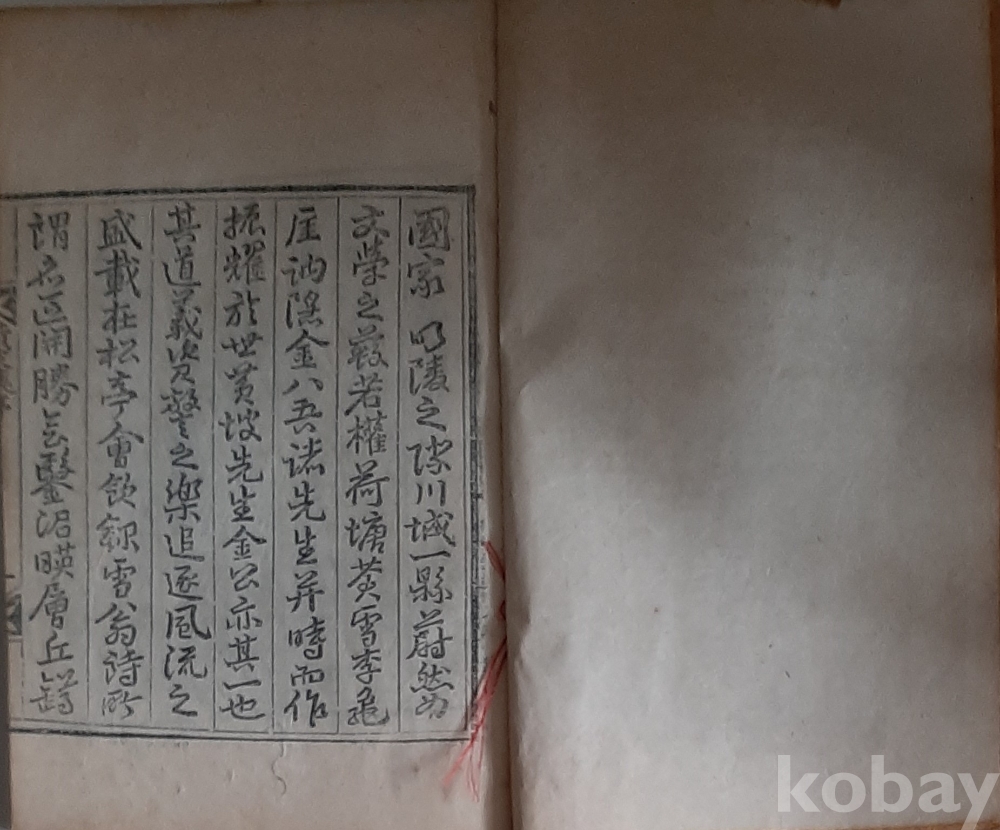 國家 明陵之際川城一縣蔚然爲
文學之藪若權荷塘黃雪李龜
厓訥隱金八吾諸先生并時而作
振耀於世黃坡先生金公亦其一也
其道義資警之樂追逐風流之
盛載在松亭會飮錄雪翁詩所
謂名區開勝會鑿沼暎層丘
kobay